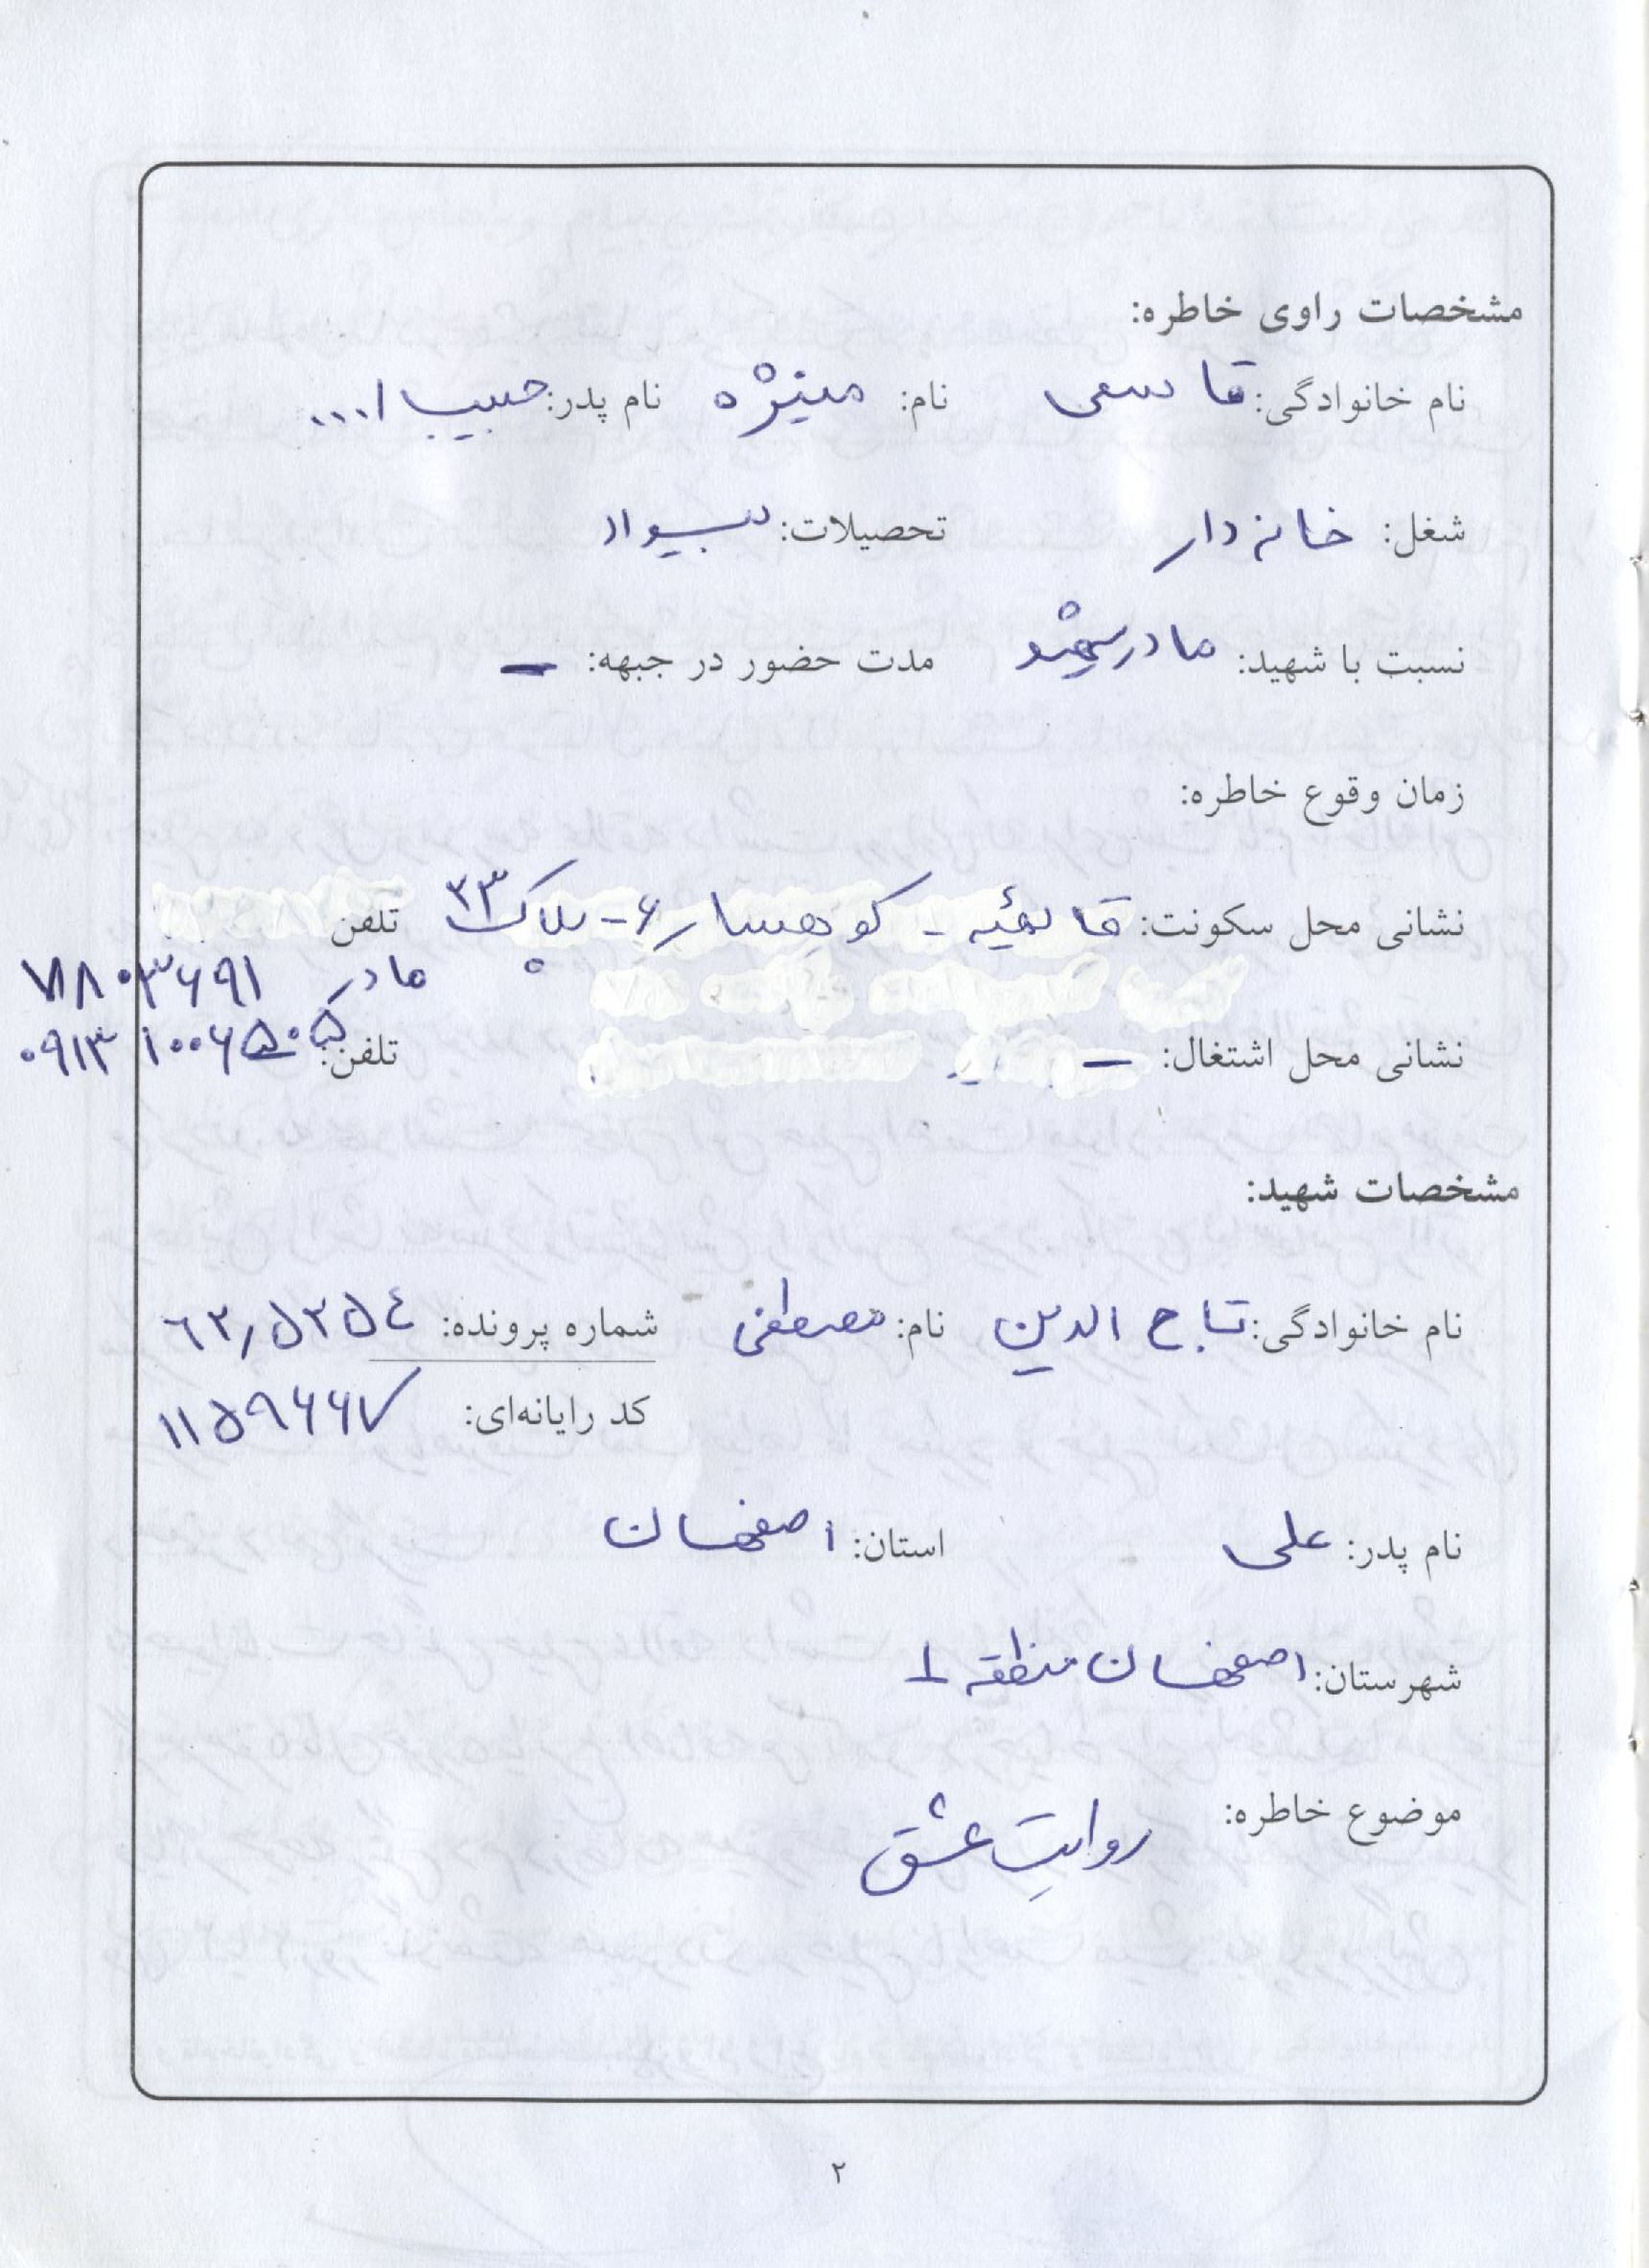 مشخصات راوی خاطره:
نام خانوادگی: قاسمی نام: منیژه نام پدر: حبیب ا...
شغل: خانه دار تحصیلات: بیسواد
نسبت با شهید: مادر شهید مدت حضور در جبهه: -
زمان وقوع خاطره:
نشانی محل سکونت: قائمیه - کوهسار ۶ - پلاک ۳۳ تلفن
مادر ۷۸۰۳۶۹۱
نشانی محل اشتغال: - تلفن: ۰۹۱۳۱۰۰۶۵۰۵
مشخصات شهید:
نام خانوادگی: تاج الدین نام: مصطفی شماره پرونده: ٦٢٫٥٢٥٤
کد رایانه‌ای: ۱۱۵۹۶۶۷
نام پدر: علی استان: اصفهان
شهرستان: اصفهان منطقه ۱
موضوع خاطره: روایتِ عشق
۲